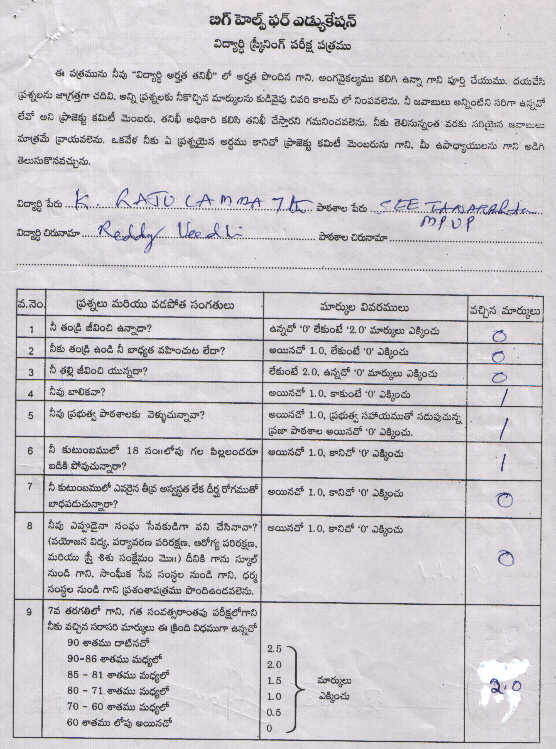 బిగ్ హెల్ప్ ఫర్ ఎడ్యుకేషన్
విద్యార్థి స్క్రీనింగ్ పరీక్ష పత్రము
ఈ పత్రమును నీవు "విద్యార్థి అర్హత తనిఖీ" లో అర్హత పొందిన గాని, అంగవైకల్యము కలిగి ఉన్నా గాని పూర్తి చేయుము. దయచేసి
ప్రశ్నలను జాగ్రత్తగా చదివి, అన్ని ప్రశ్నలకు నీకొచ్చిన మార్కులను కుడివైపు చివరి కాలమ్ లో నింపవలెను. నీ జవాబులు అన్నింటిని సరిగా ఉన్నవో
లేవో అని ప్రాజెక్టు కమిటీ మెంబరు, తనిఖీ అధికారి కలిసి తనిఖీ చేస్తారని గమనించవలెను. నీకు తెలిసినంత వరకు సరియైన జవాబులు
మాత్రమే వ్రాయవలెను. ఒకవేళ నీకు ఏ ప్రశ్నయైన అర్థము కానిచో ప్రాజెక్టు కమిటీ మెంబరును గాని, మీ ఉపాధ్యాయులను గాని అడిగి
తెలుసుకొనవచ్చును.
విద్యార్థి పేరు K. RAJU LAMMA 7th పాఠశాల పేరు
MPUP
విద్యార్థి చిరునామా Reddy Veedhi పాఠశాల చిరునామా
వ.నెం. ప్రశ్నలు మరియు వడపోత సంగతులు మార్కుల వివరములు వచ్చిన మార్కులు
1 నీ తండ్రి జీవించి ఉన్నాడా? ఉన్నచో '0' లేకుంటే '2.0' మార్కులు ఎక్కించు 0
2 నీకు తండ్రి ఉండి నీ బాధ్యత వహించుట లేదా? అయినచో 1.0, లేకుంటే '0' ఎక్కించు 0
3 నీ తల్లి జీవించి యున్నదా? లేకుంటే 2.0, ఉన్నచో '0' మార్కులు ఎక్కించు 0
4 నీవు బాలికవా? అయినచో 1.0, కాకుంటే '0' ఎక్కించు 1
5 నీవు ప్రభుత్వ పాఠశాలకు వెళ్ళుచున్నావా? అయినచో 1.0, ప్రభుత్వ సహాయముతో నడుపుచున్న
ప్రజా పాఠశాల అయినచో '0' ఎక్కించు. 1
6 నీ కుటుంబములో 18 సం॥లోపు గల పిల్లలందరూ అయినచో 1.0, కానిచో '0' ఎక్కించు 1
బడికి పోవుచున్నారా?
7 నీ కుటుంబములో ఎవరైన తీవ్ర అస్వస్థత లేక దీర్ఘ రోగముతో అయినచో 1.0, కానిచో '0' ఎక్కించు 0
బాధపడుచున్నారా?
8 నీవు ఎప్పుడైనా సంఘ సేవకుడిగా పని చేసినావా? అయినచో 1.0, కానిచో '0' ఎక్కించు 0
(వయోజన విద్య, పర్యావరణ పరిరక్షణ, ఆరోగ్య పరిరక్షణ,
మరియు స్త్రీ శిశు సంక్షేమం మొ॥) దీనికి గాను స్కూల్
నుండి గాని, సాంఘీక సేవ సంస్థల నుండి గాని, ధర్మ
సంస్థల నుండి గాని ప్రశంశాపత్రము పొందిఉండవలెను.
9 7వ తరగతిలో గాని, గత సంవత్సరాంతపు పరీక్షలోగాని
నీకు వచ్చిన సరాసరి మార్కులు ఈ క్రింది విధముగా ఉన్నచో
90 శాతము దాటినచో 2.5
90-86 శాతము మధ్యలో 2.0
85 - 81 శాతము మధ్యలో 1.5 మార్కులు 2.0
80 - 71 శాతము మధ్యలో 1.0 ఎక్కించు
70 - 60 శాతము మధ్యలో 0.5
60 శాతము లోపు అయినచో 0